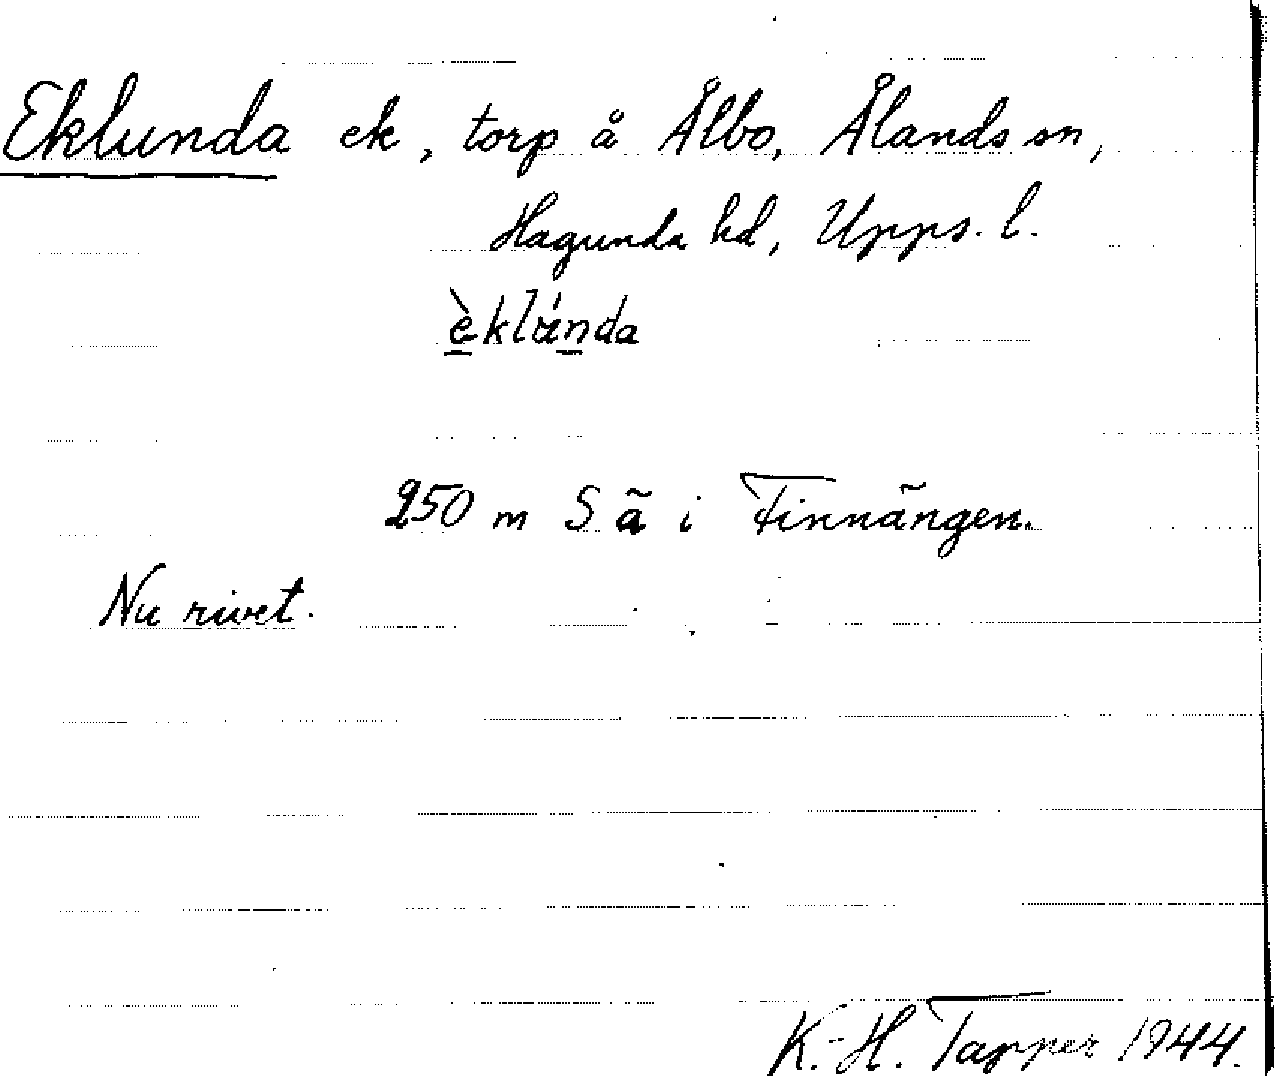 Eklunda ek, torp å Ålbo, Ålands sn,
Hagunda hd, Upps. l.
èklúnda
250 m S ä i Finnängen.
Nu rivet.
K.-H. Tapper 1944.